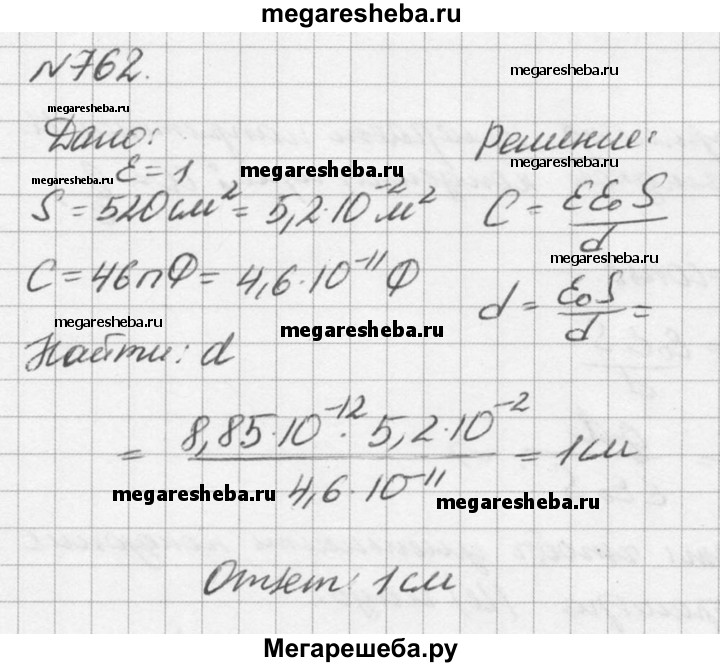 megaresheba.com
N762.
megaresheba.ru
megaresheba.ru
Дано:
Решение:
ε = 1
megaresheba.ru
megaresheba.ru
megaresheba.ru
S = 520 см² = 5,2·10⁻² м²
C = εε₀S/d
C = 46 пФ = 4,6·10⁻¹¹ Ф
d = ε₀S/d =
megaresheba.ru
megaresheba.ru
megaresheba.ru
Найти: d
= 8,85·10⁻¹²·5,2·10⁻²/4,6·10⁻¹¹ = 1 см
megaresheba.ru
megaresheba.ru
Ответ: 1 см
Мегарешеба.ру